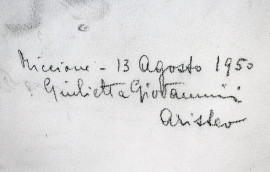 Riccione - 13 Agosto 1950
Giulietta Giovannini
Aristeo